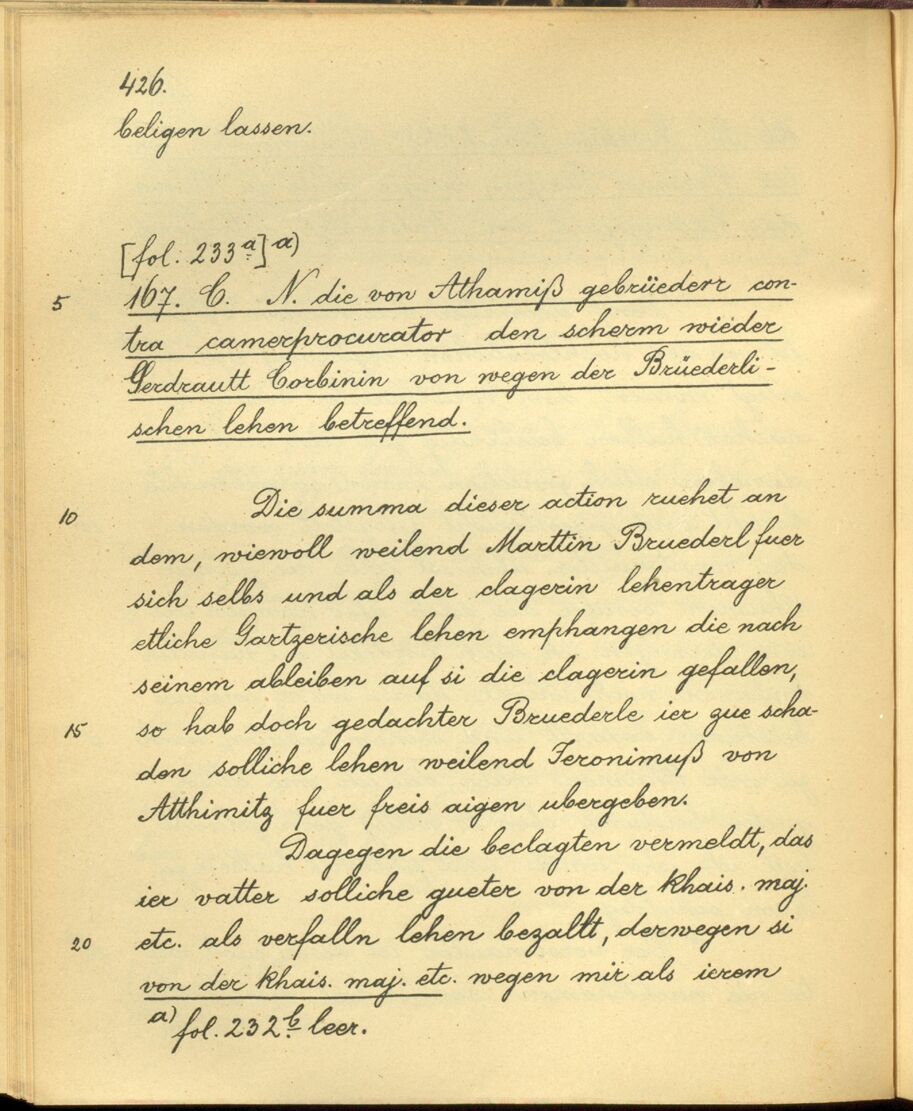 426.
beligen lassen.
[fol. 233ª] a)
5 167. C. N. die von Athamiß gebrüederr con-
tra camerprocurator den scherm wieder
Gerdrautt Corbinin von wegen der Brüederli-
schen lehen betreffend.
10 Die summa dieser action ruehet an
dem, wiewoll weilend Marttin Bruederl fuer
sich selbs und als der clagerin lehentrager
etliche Gartzerische lehen emphangen die nach
seinem ableiben auf si die clagerin gefallen,
15 so hab doch gedachter Bruederle ier zue scha-
den solliche lehen weilend Jeronimuß von
Atthimitz fuer freis aigen ubergeben.
Dagegen die beclagten vermeldt, das
ier vatter solliche gueter von der khais. maj.
20 etc. als verfalln lehen bezallt, derwegen si
von der khais. maj. etc. wegen mir als ierem
a) fol. 232b leer.